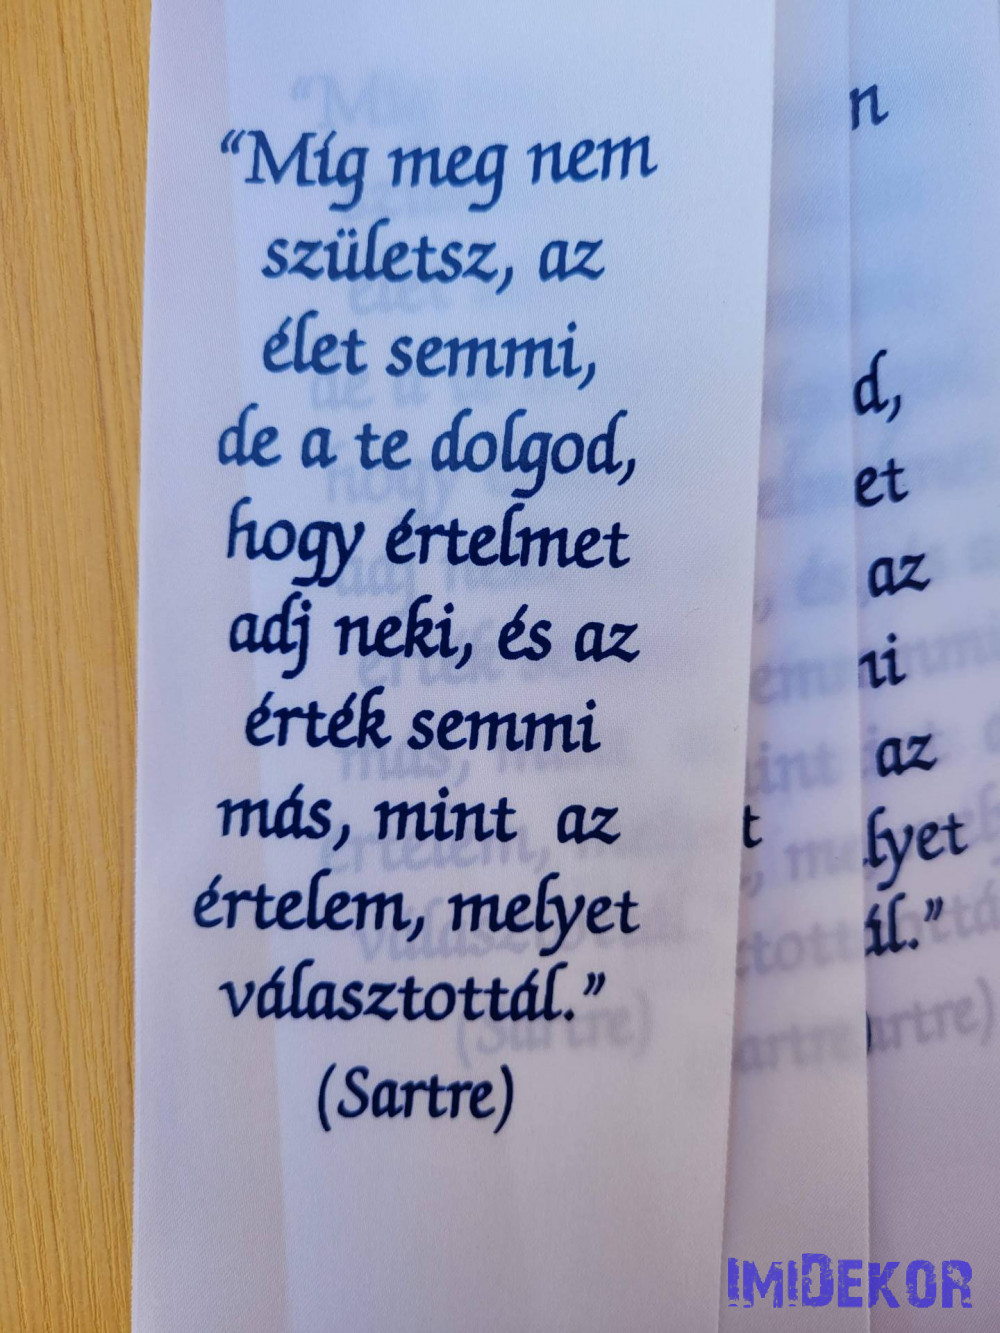 “Míg meg nem
születsz, az
élet semmi,
de a te dolgod,
hogy értelmet
adj neki, és az
érték semmi
más, mint az
értelem, melyet
választottál.”
(Sartre)
n
d,
et
az
ni
az
t
lyet
ál.”
artre)
IMIDEKOR